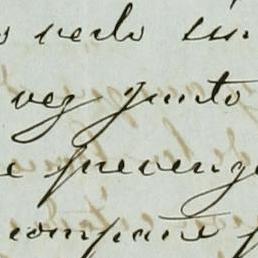 verlo sin
vez junto
e prevenga
compañe